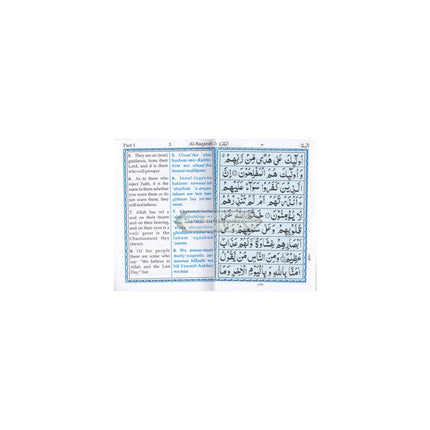 Part 1 3 Al-Baqarah 2
5. They are on (true)
guidance, from their
Lord, and it is these
who will prosper.
6. As to those who
reject Faith, it is the
same to them whether
you warn them or do
not warn them; they
will not believe.
7. Allah has set a
seal on their hearts
and on their hearing,
and on their eyes is a
veil; great is the
Chastisement they
(incur).
8. Of the people
there are some who
say: "We believe in
Allah and the Last
Day;" but
5. Ulaaa'ika 'alaa
hudam-mir-Rabbi-
him wa ulaaa'ika
humul-muflihoon.
6. Innal-lazeena
kafaroo sawaaa'un
yu'minoon.
8. Wa minan-naasi
many-yaqoolu aa-
mannaa billaahi wa
bil-Yawmil-Aakhiri
wa maa
٣
اُولٰٓئِكَ عَلٰى هُدًى مِّنْ رَّبِّهِمْ
وَاُولٰٓئِكَ هُمُ الْمُفْلِحُوْنَ اِنَّ
الَّذِيْنَ كَفَرُوْا سَوَآءٌ عَلَيْهِمْ
ءَاَنْذَرْتَهُمْ اَمْ لَمْ تُنْذِرْهُمْ
لَا يُؤْمِنُوْنَ خَتَمَ اللّٰهُ عَلٰى
قُلُوْبِهِمْ وَعَلٰى سَمْعِهِمْ وَعَلٰٓى
اَبْصَارِهِمْ غِشَاوَةٌ وَّلَهُمْ عَذَابٌ
عَظِيْمٌ وَمِنَ النَّاسِ مَنْ يَّقُوْلُ
اٰمَنَّا بِاللّٰهِ وَبِالْيَوْمِ الْاٰخِرِ وَمَا